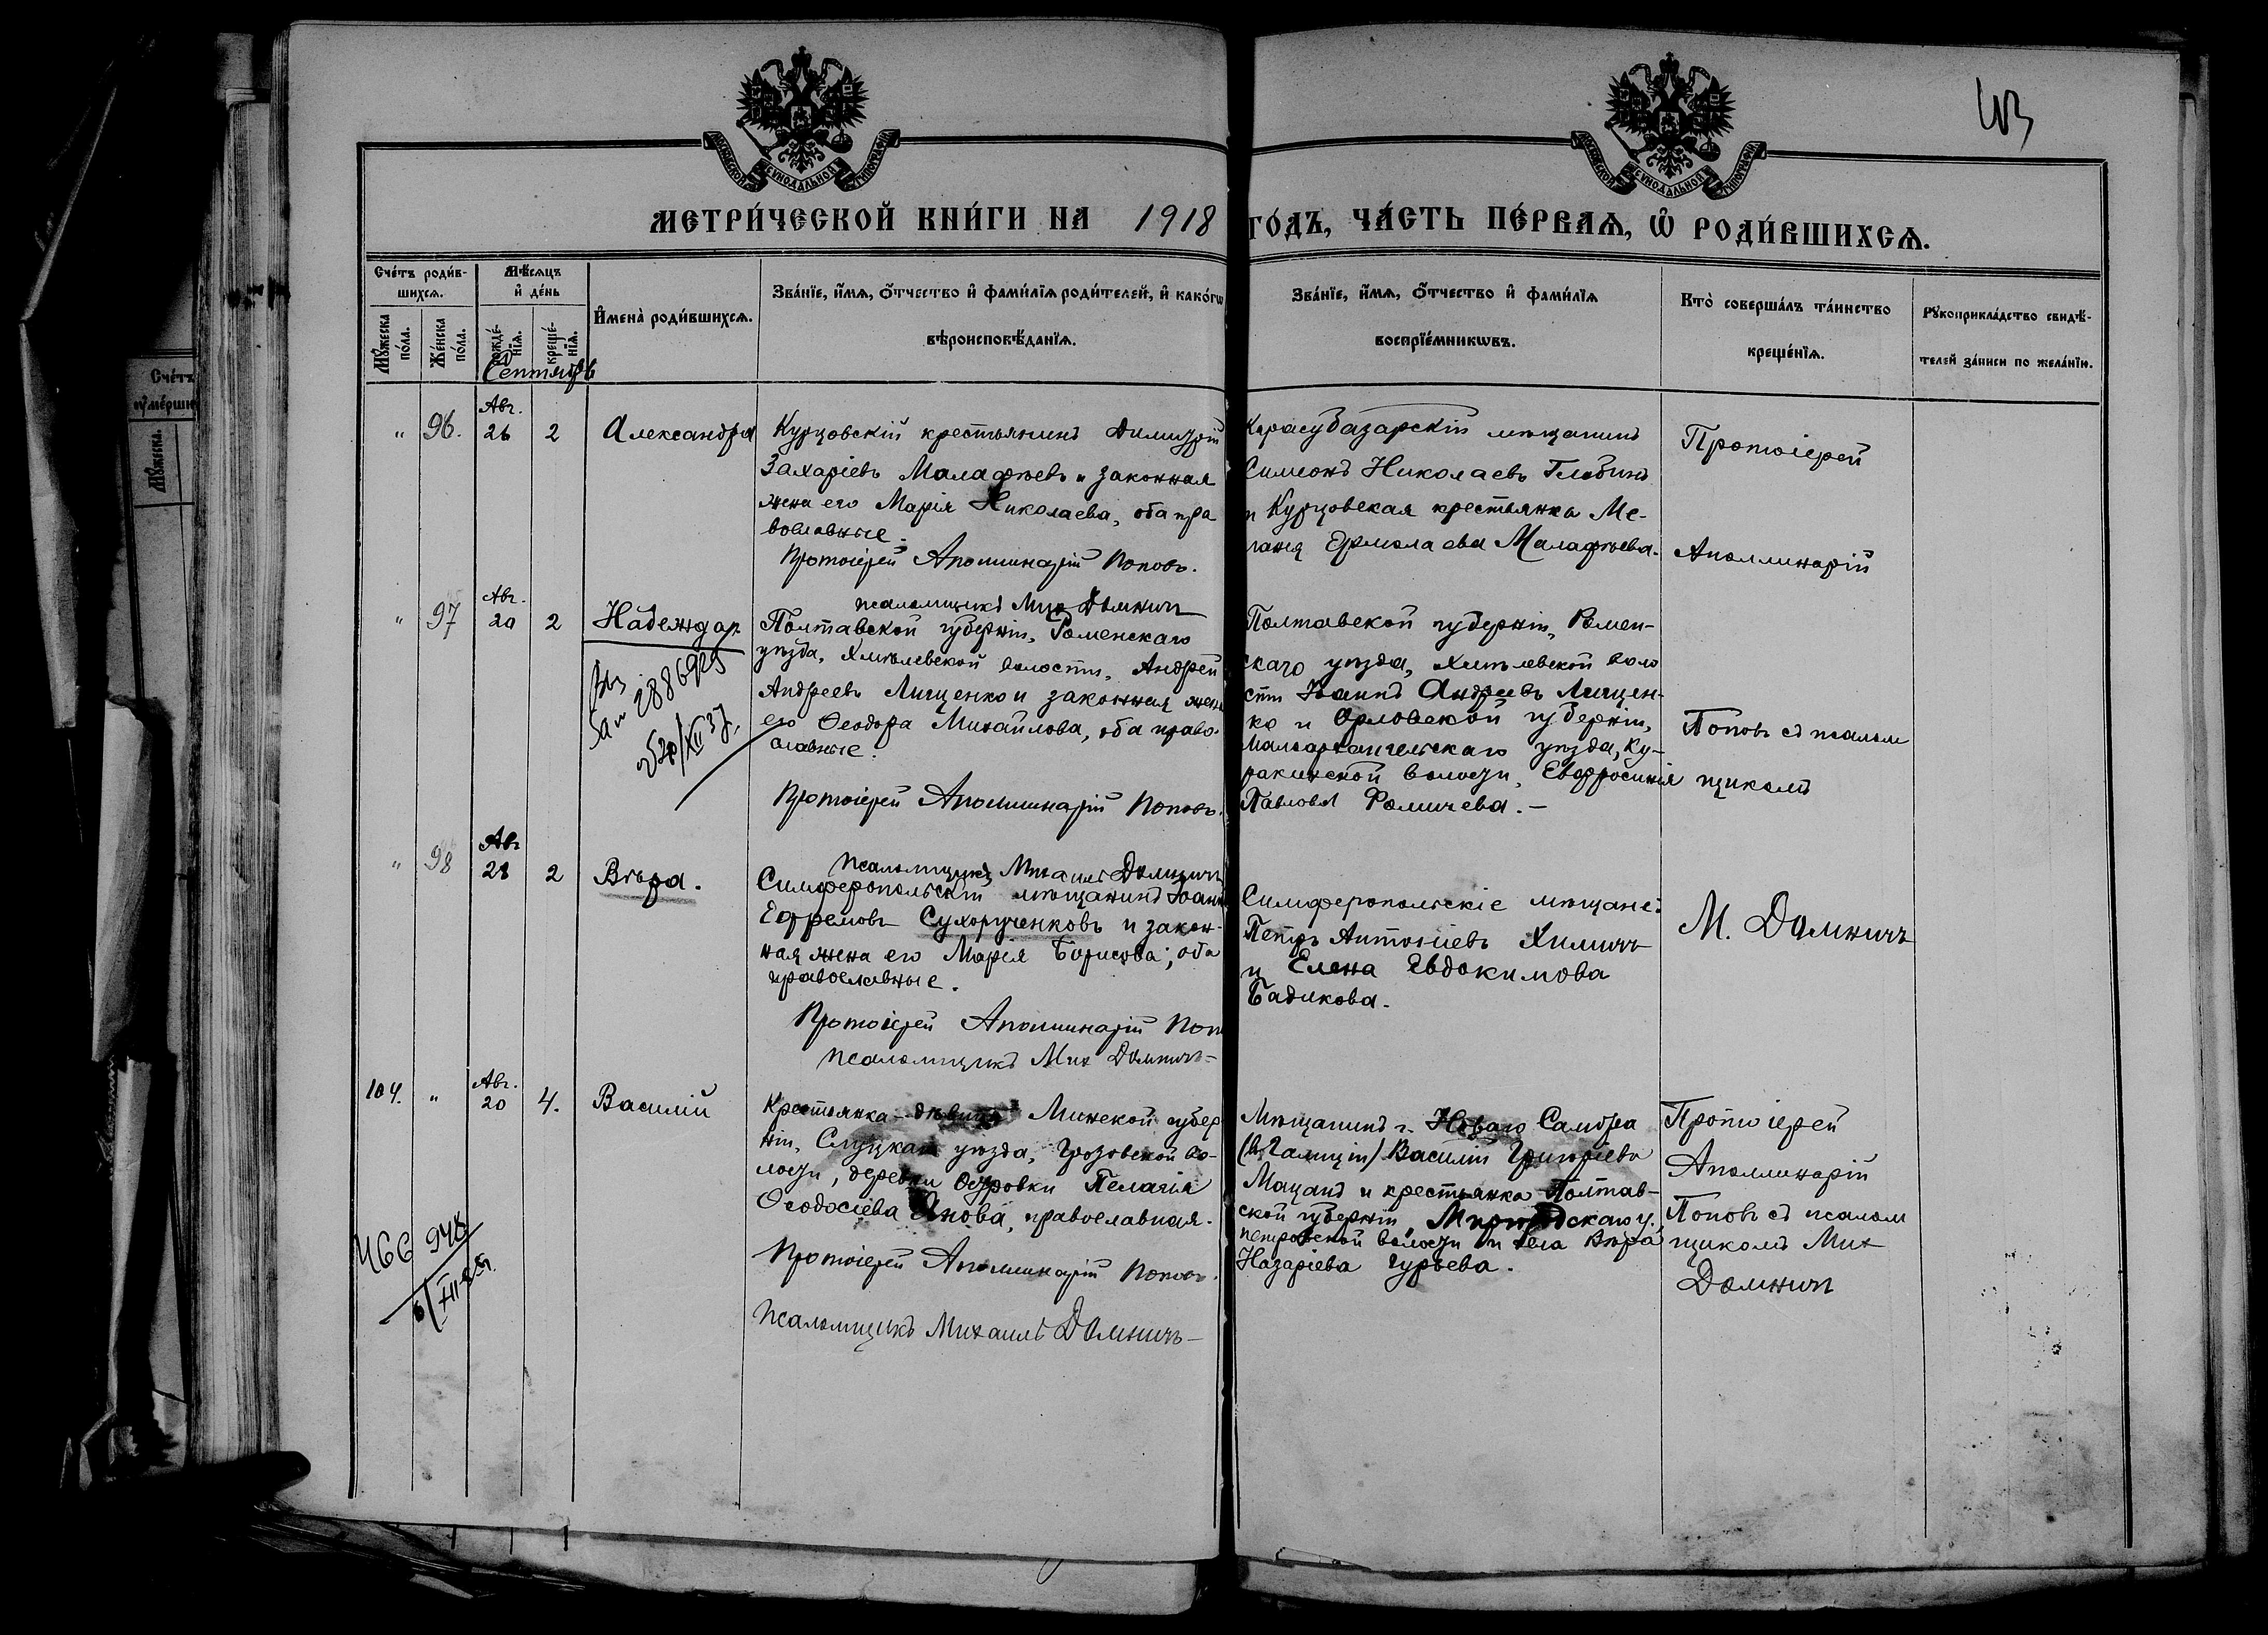 МОСКОВСКОЙ СУНОДАЛЬНОЙ ТИПОГРАФІИ
МОСКОВСКОЙ СУНОДАЛЬНОЙ ТИПОГРАФІИ
МЕТРИ́ЧЕСКОЙ КНИ́ГИ НА 1918 ГО́ДЪ, ЧА́СТЬ ПЕ́РВАѦ, Ѽ РОДИ́ВШИХСѦ.
Сче́тъ роди́в-
шихсѧ.
Мꙋ́жеска по́ла.
Же́нска по́ла.
Мѣ́сѧцъ
и҆ де́нь
рожде́-нїѧ.
креще́-нїѧ.
Сентябрь
И҆мена̀ роди́вшихсѧ.
Зва́нїе, и҆́мѧ, ѻ҆́тчество и҆ фами́лїѧ роди́телей, и҆ како́гѡ
вѣроисповѣ́данїѧ.
Зва́нїе, и҆́мѧ, ѻ҆́тчество и҆ фами́лїѧ
воспрїе́мникѡвъ.
Кто̀ соверша́лъ та́инство
креще́нїѧ.
Рꙋкоприкла́дство свидѣ́-
телей за́писи по жела́нїю.
" 96. Авг. 26 2 Александра
Курцовскій крестьянинъ Димитрій
Захаріевъ Малафѣевъ и законная
жена его Марія Николаева, оба пра
вославные.
Протоіерей Аполлинарій Поповъ.
псаломщикъ Мих Домничъ
Карасубазарскій мѣщанинъ
Симеонъ Николаевъ
и Курцовская крестьянка Ме-
ланія Ермолаева Малафѣева.
Протоіерей
Аполлинарій
" 97 Авг. 20 2 Надежда
2886925
Полтавской губерніи, Роменскаго
уѣзда, Хмѣлевской волости, Андрей
Андреевъ Лищенко и законная жена
его Ѳеодора Михайлова, оба право-
славные.
Протоіерей Аполлинарій Поповъ.
псаломщикъ Михаилъ Домничъ
Полтавской губерніи, Ромен-
скаго уѣзда, Хмѣлевской воло
сти Іоаннъ Андреевъ Лищен-
ко и Орловской губерніи,
Малоархангельскаго уѣзда, Ку-
ракинской волости, Евфросинія
Павлова Фомичева. –
Поповъ съ псалом
щикомъ
" 98 Авг 28 2 Вѣра.
Симферопольскій мѣщанинъ Іоаннъ
Ефремовъ Сухорученковъ и закон-
ная жена его Марія Борисова; оба
православные.
Протоіерей Аполлинарій Поп
псаломщикъ Мих Домничъ –
Симферопольскіе мѣщане:
Петръ Антоніевъ Химичъ
и Елена Евдокимова
Бадикова.
М. Домничъ
104. " Авг. 20 4. Василій
Крестьянка – дѣвица Минской губер
ніи, Слуцкаго уѣзда, Грозовской во-
лости, деревни Островки Пелагія
Ѳеодосіева Янова, православная.
Протоіерей Аполлинарій Поповъ.
псаломщикъ Михаилъ Домничъ –
Мѣщанинъ г. Новаго Самбра
(въ Галиціи) Василій Григорьевъ
Мацанъ и крестьянка Полтав-
ской губерніи, Миргородскаго у.
Петровской волости и села Вѣра
Назаріева Гурьева.
Протоіерей
Аполлинарій
Поповъ съ псалом
щикомъ Мих
Домничъ